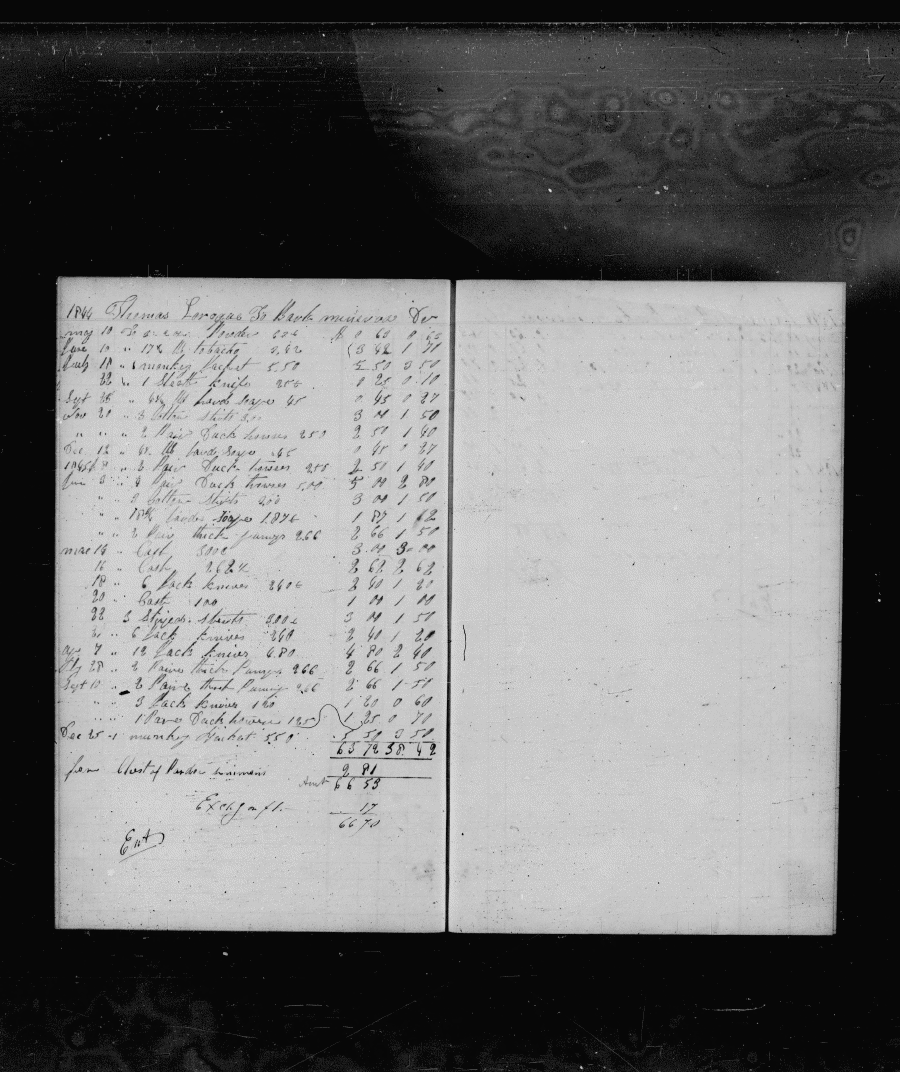 1844 Thomas To Bark minerva Dr
may 10 To Powder $ 0 60 0
June 10 " 17 lb tobacco 3 42 1 70
July 18 " 1 monkey Jacket 5.50 5 50 3 50
22 " 1 Sheath knife 25c 0 25 0 10
Sept 28 " lb hard soap 45 0 45 0 27
Nov 20 " 3 Cotton shirts 3.00 3 00 1 50
" " " 2 Pair Duck 250 2 50 1 40
Dec 12 " lb hard soap 45 0 45 0 27
1845 " 2 Pair Duck 250 2 50 1 40
Jan 3 " 4 Pair Duck 5.00 5 00 2 80
" " 3 Cotton Shirts 300 3 00 1 50
" " 18¾ hard soap 1.87½ 1 87 1 62
" " 2 Pair thick pumps 266 2 66 1 50
mar 14 " Cash 300c 3 00 3 00
16 " Cash 262½ 2 62 2 62
18 " 6 Jack knives 240c 2 40 1 20
20 " Cash 100 1 00 1 00
22 3 Striped shirts 300c 3 00 1 50
" 6 Jack knives 240 2 40 1 20
7 " 12 Jack knives 4.80 4 80 2 40
28 " 2 Pairs thick Pumps 266 2 66 1 50
Sept 10 " 2 Pairs thick Pumps 266 2 66 1 50
" " 3 Jack knives 120 1 20 0 60
" " 1 Pair Duck 125 1 25 0 70
Dec 25 " 1 monkey Jacket 550 5 50 3 50
63 72 38.42
2 81
Amt 66 53
Exchg on
17
66 70
Ent